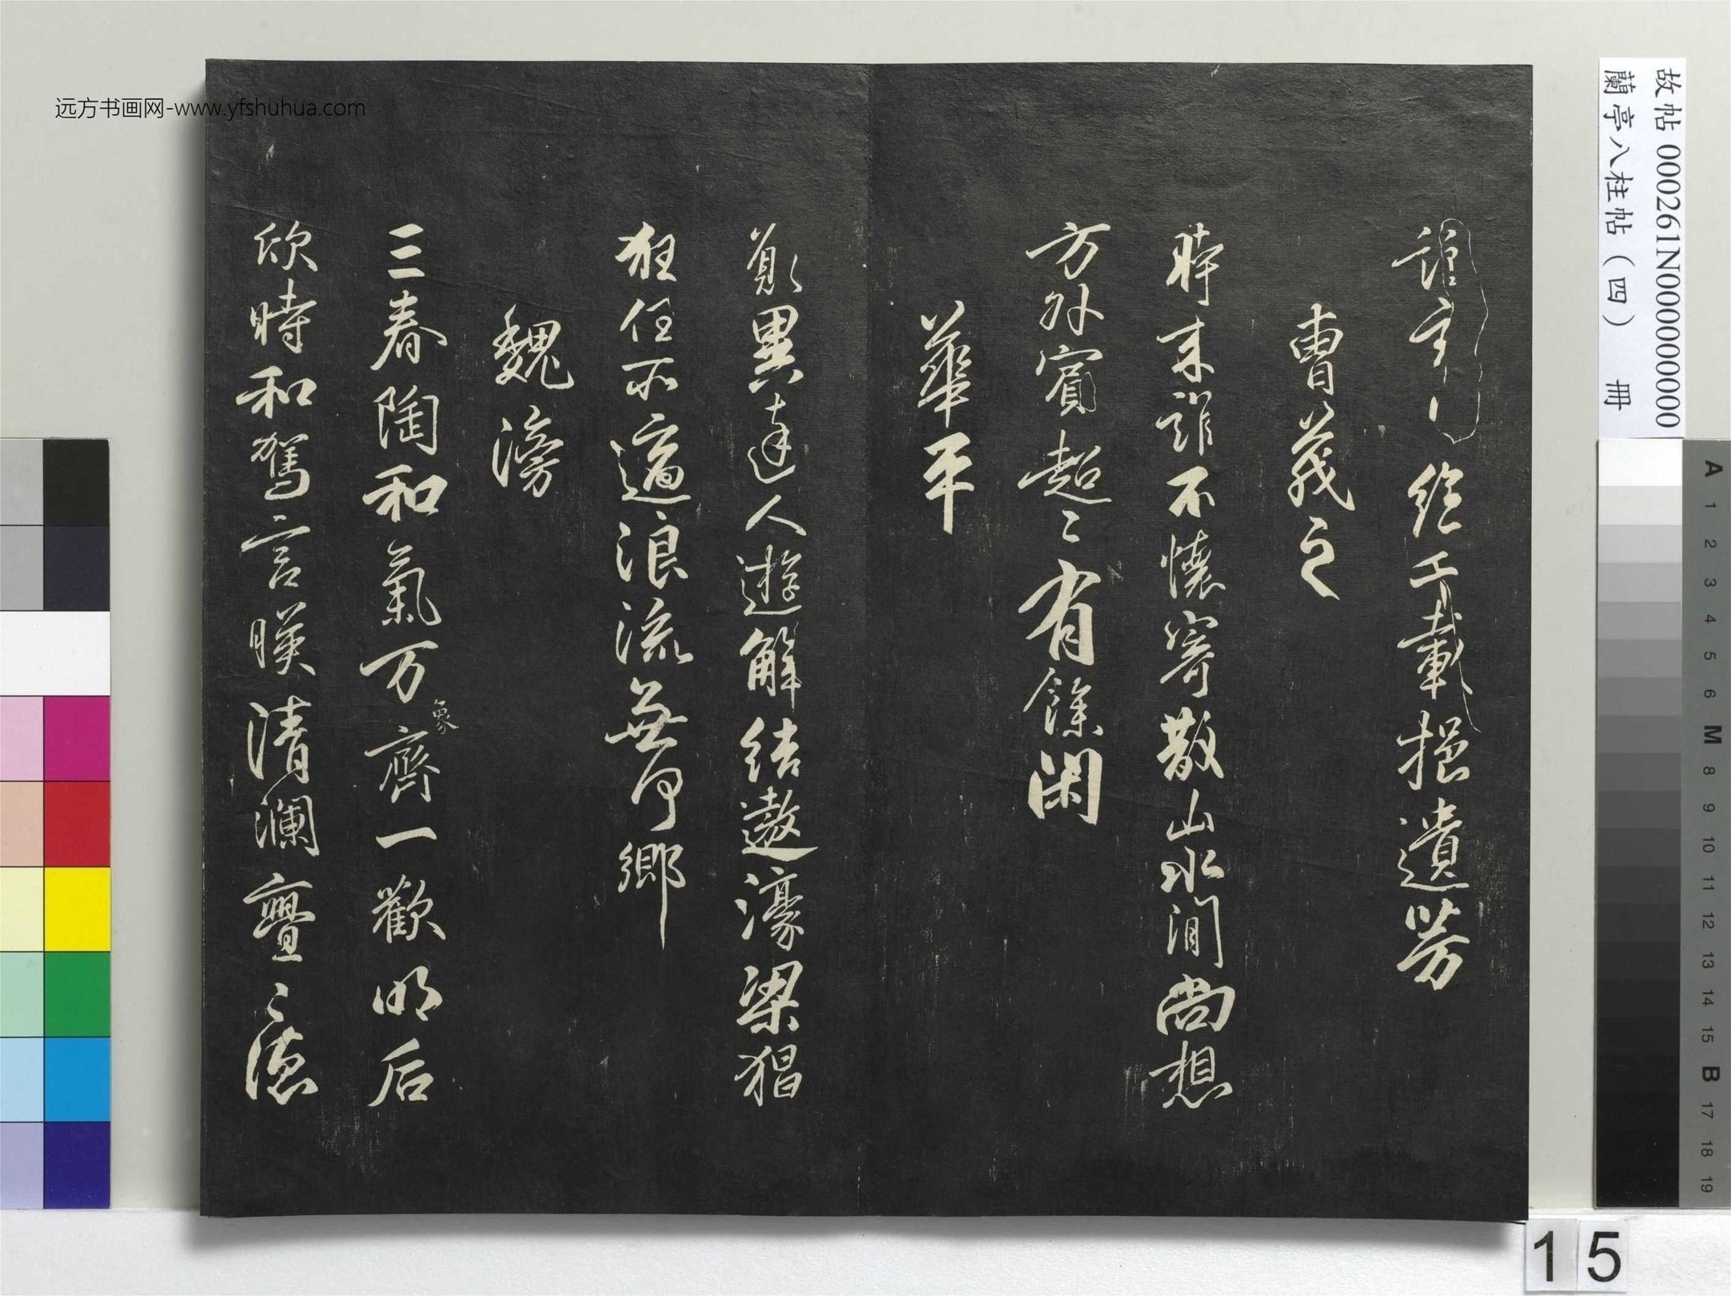 誰絕千載挹遺芳
曹茂之
時來誰不懷寄散山水間尚想
方外賓超々有餘閑
華平
願與達人遊解結遨濠梁猖
狂任所適浪流無何鄉
魏滂
三春陶和氣万象齊一歡明后
欣時和駕言暎清瀾亹々德
远方书画网-www.yfshuhua.com
故帖 000261N000000000
蘭亭八柱帖（四） 冊
A 1 2 3 4 5 6 M 8 9 10 11 12 13 14 15 B 17 18 19
15